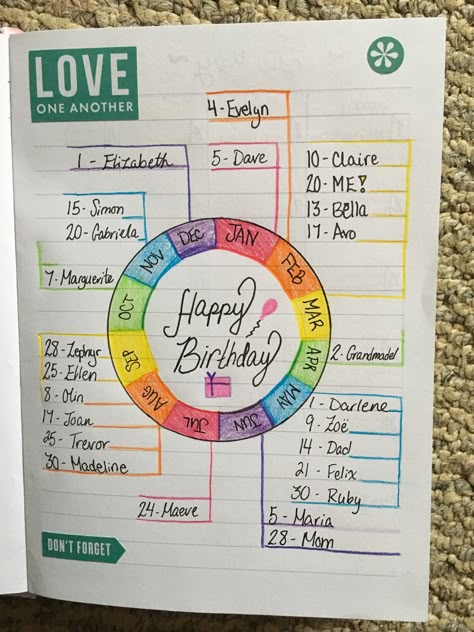 LOVE
ONE ANOTHER
4-Evelyn
1 - Elizabeth
5- Dave
10- Claire
20- ME!
13- Bella
17- Avo
15- Simon
20- Gabriela
7- Marguerite
DEC
JAN
FEB
MAR
APR
MAY
JUN
JUL
AUG
SEP
OCT
NOV
Happy
Birthday
2- Grandmadel
28- Zephyr
25- Ellen
8- Otin
17- Joan
25- Trevor
30- Madeline
1- Darlene
9- Zoë
14- Dad
21- Felix
30- Ruby
24- Maeve
5- Maria
28- Mom
DON'T FORGET